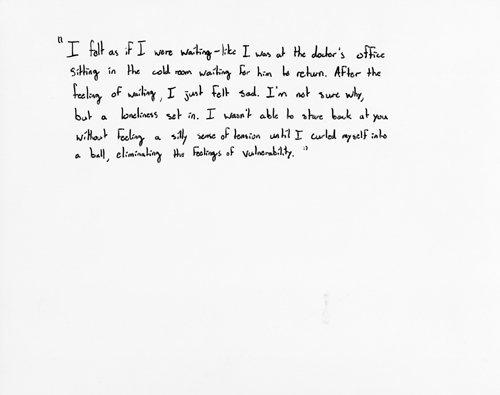 "I felt as if I were waiting - like I was at the doctor's office
sitting in the cold room waiting for him to return. After the
feeling of waiting, I just felt sad. I'm not sure why,
but a loneliness set in. I wasn't able to stare back at you
without feeling a silly sense of tension until I curled myself into
a ball, eliminating the feelings of vulnerability."